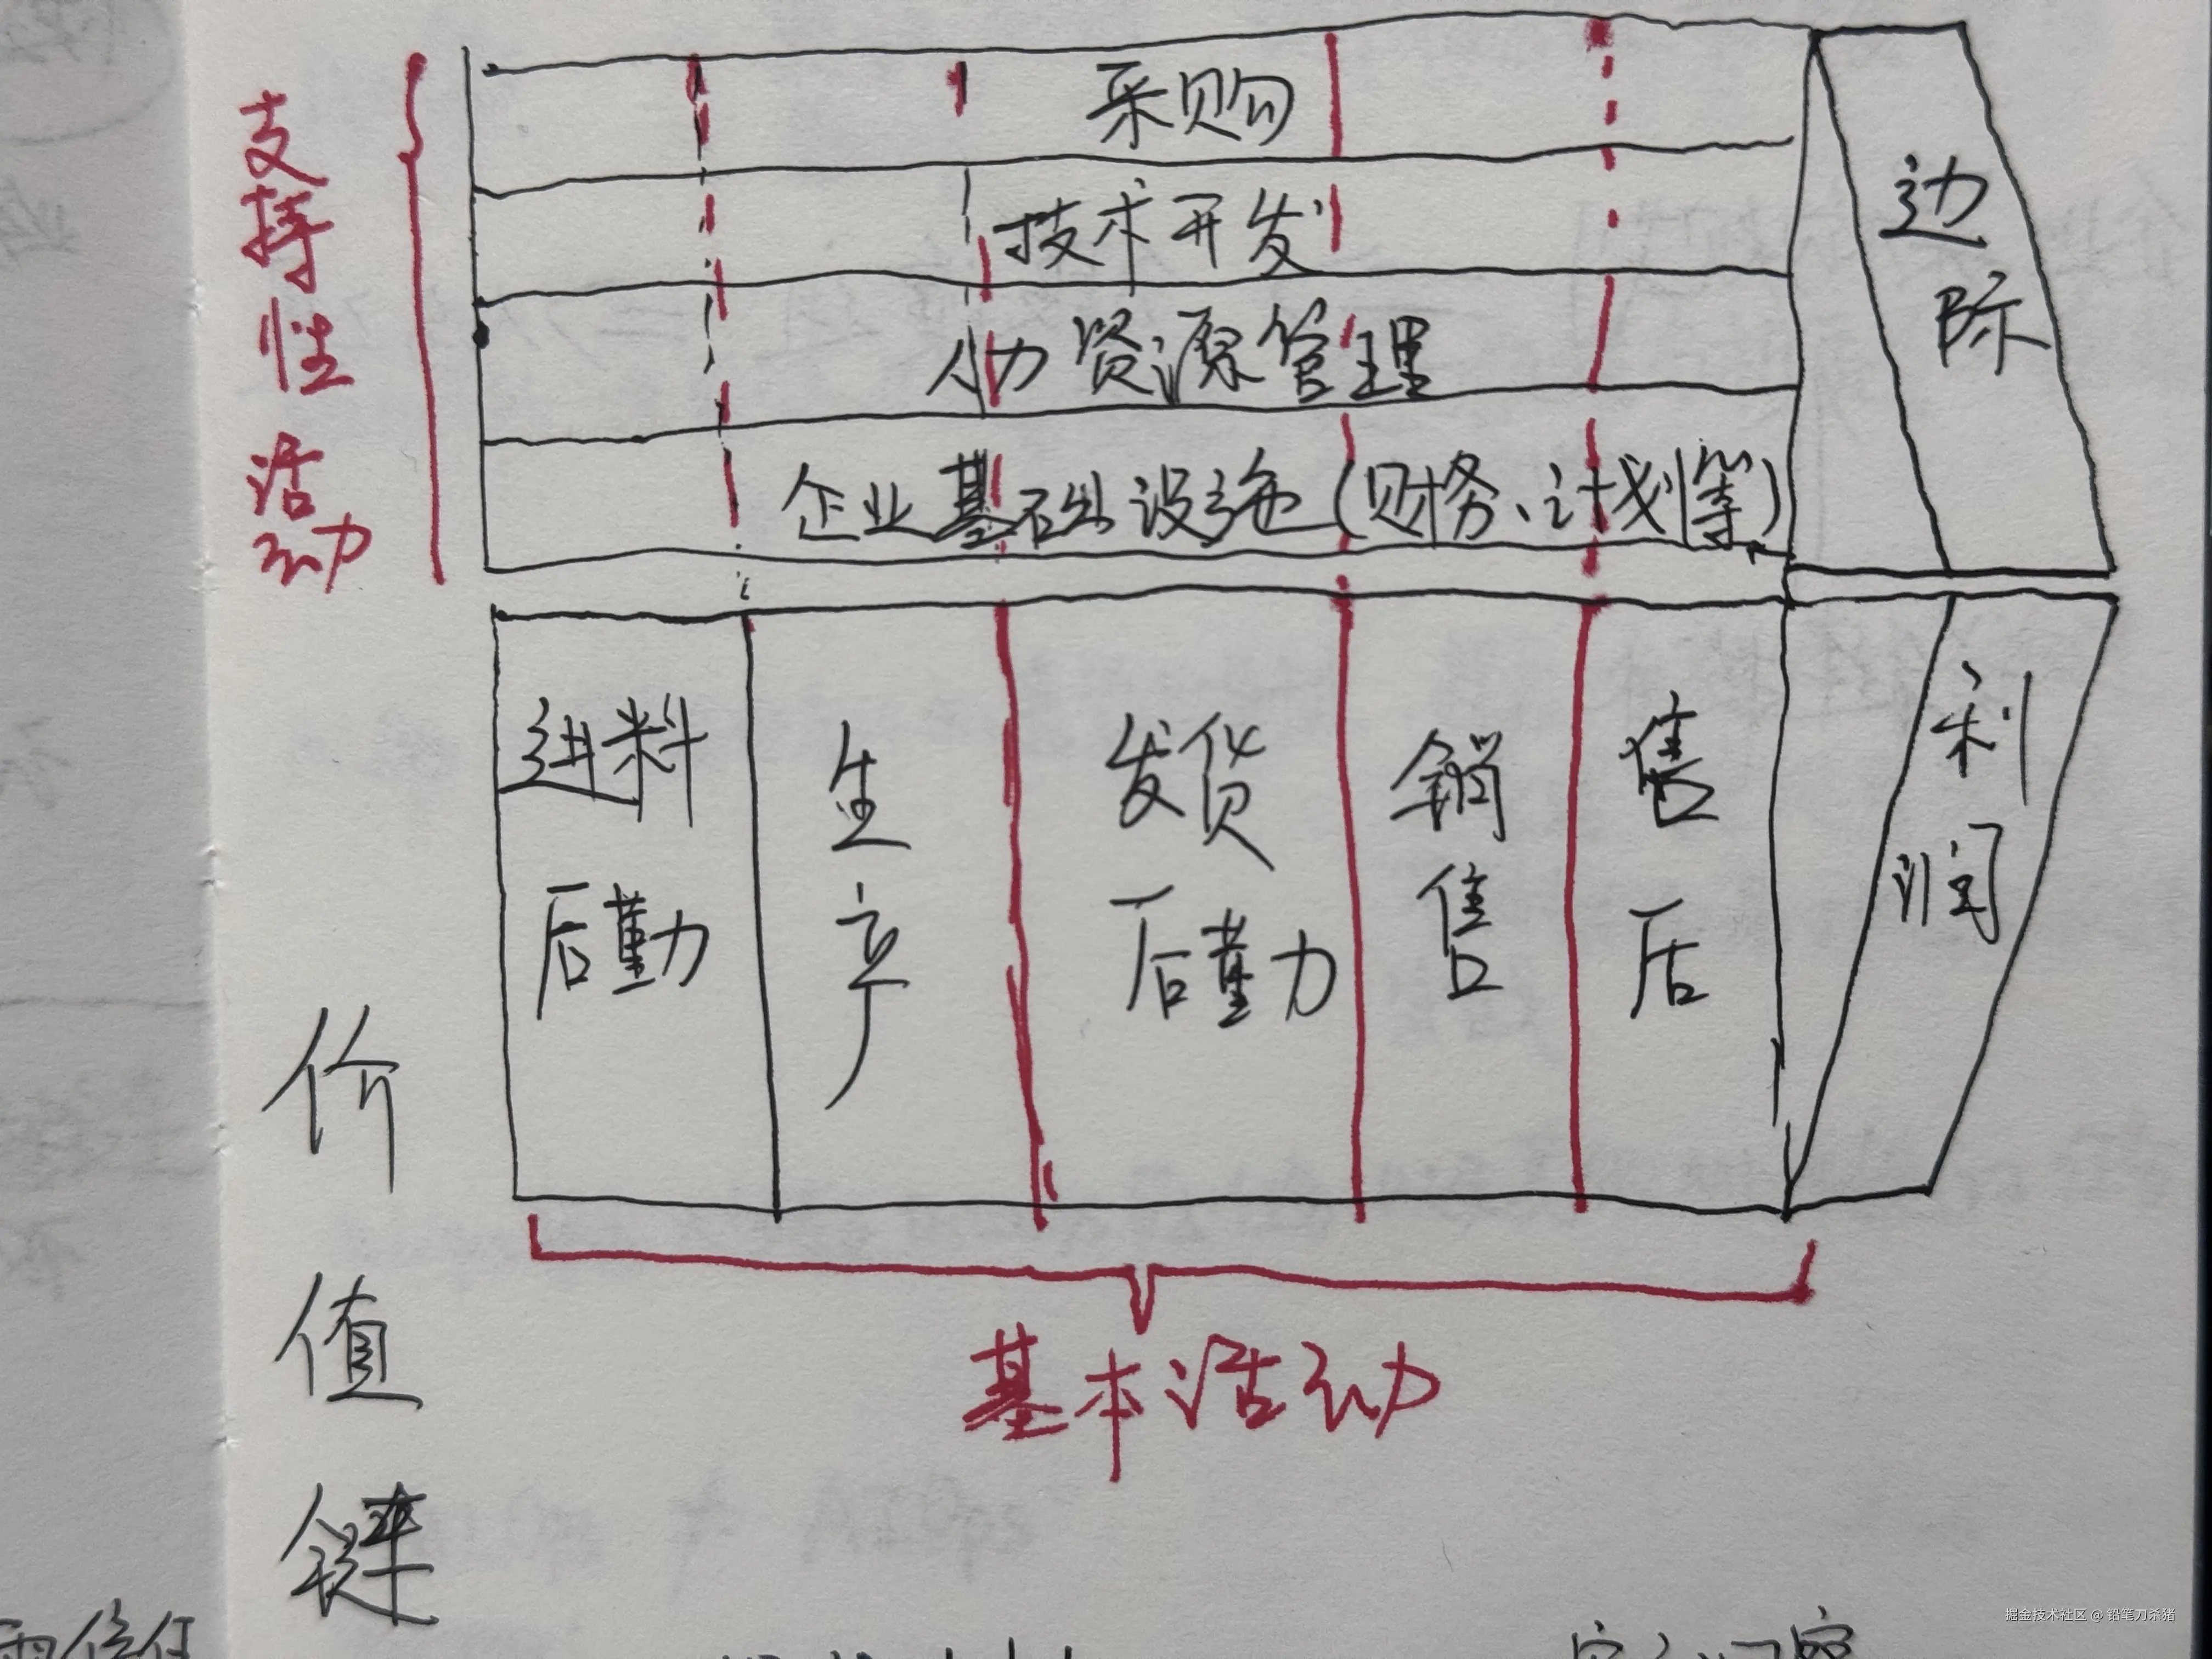 采购
技术开发
人力资源管理
企业基础设施(财务、计划等)
支持性活动
边际
进料后勤
生产
发货后勤
销售
售后
利润
基本活动
价值链
掘金技术社区 @ 铅笔刀杀猪